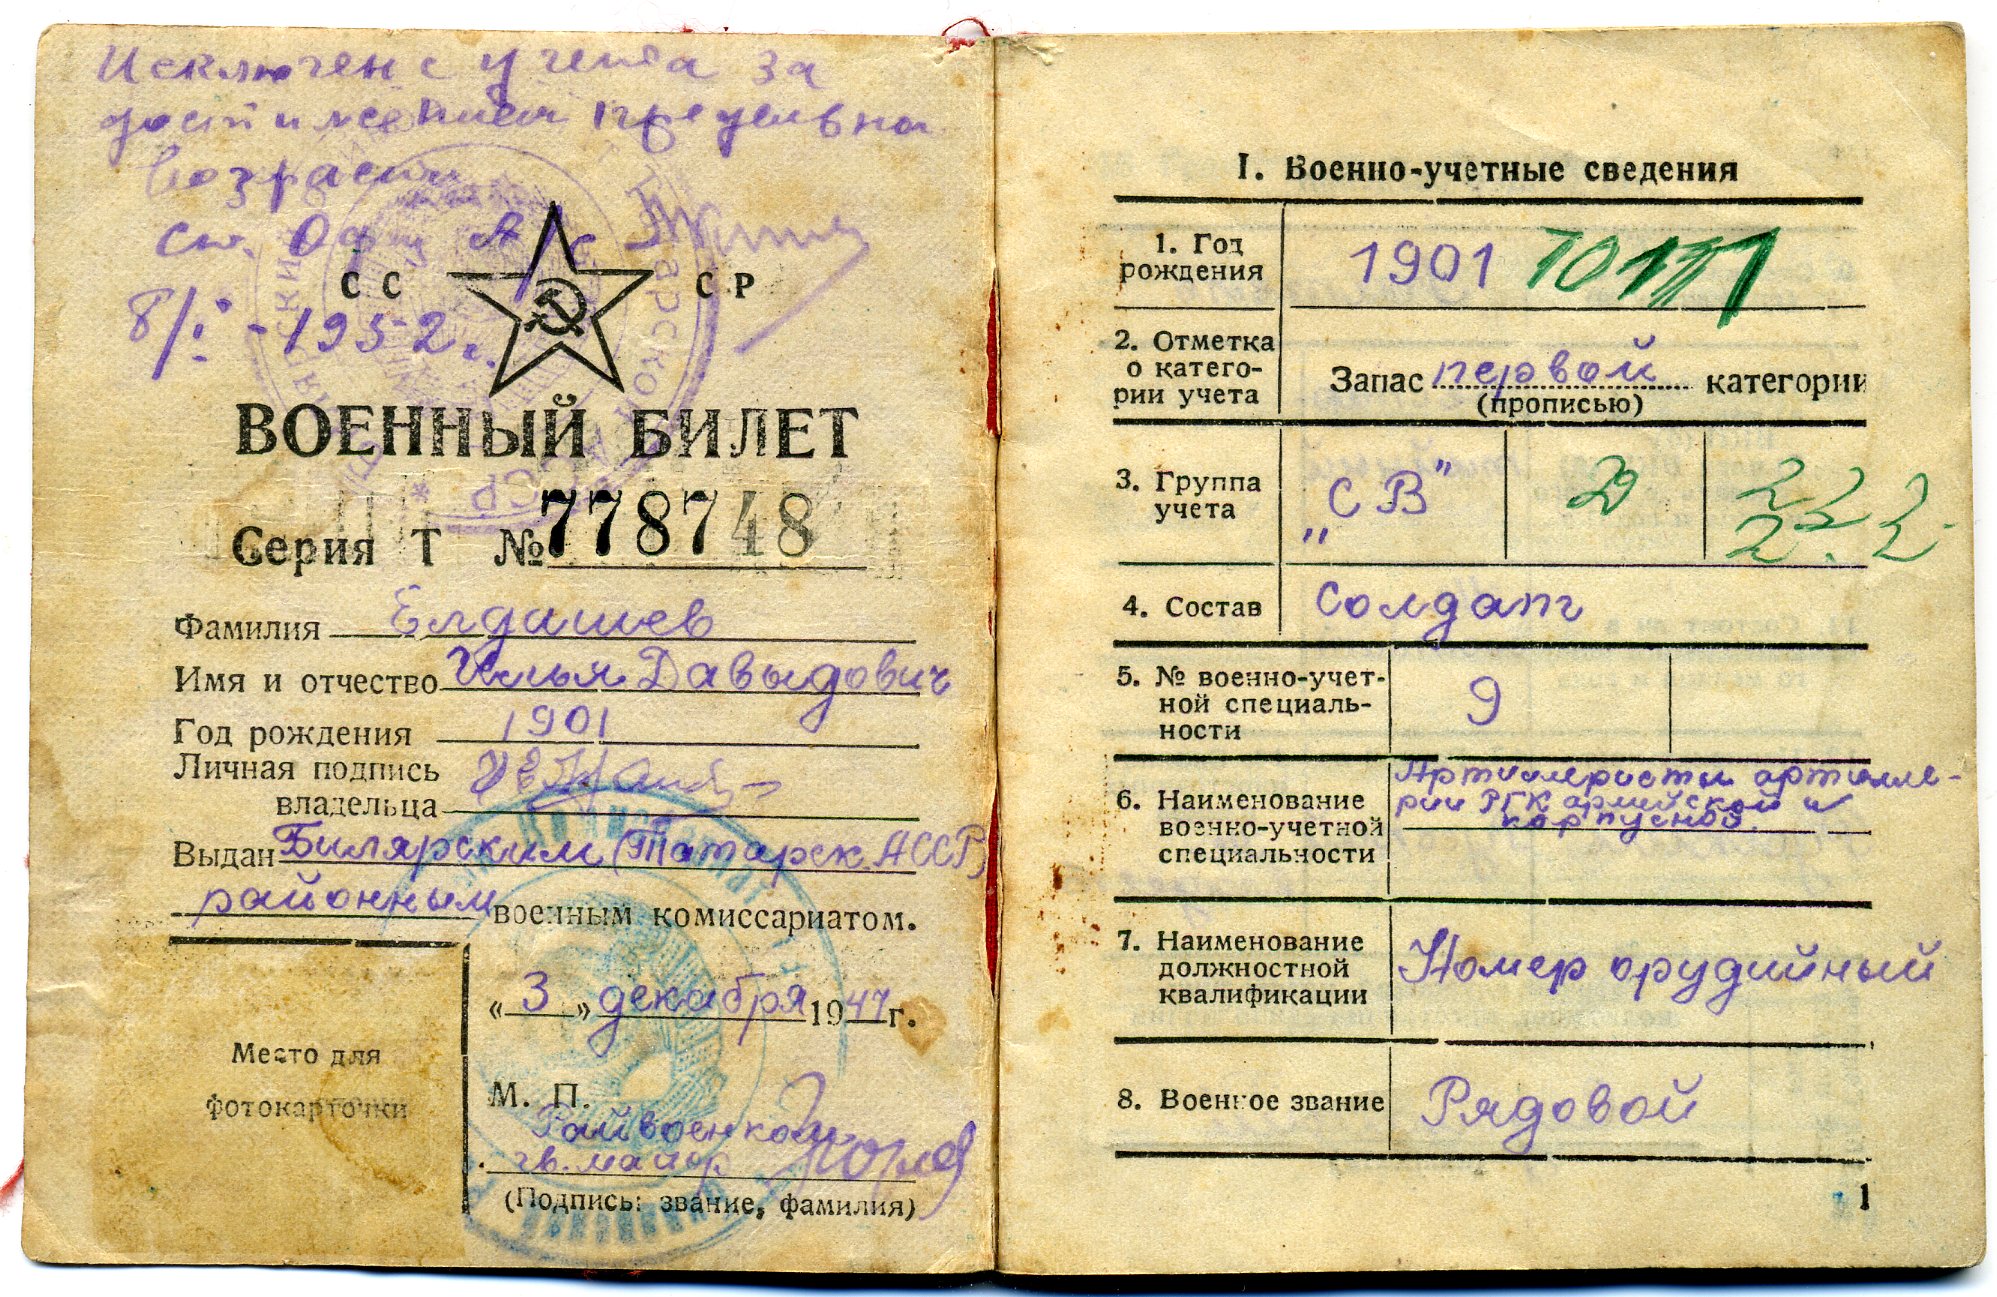 Исключен с учета за
достижением предельна
возраста
8/I - 1952 г.
СС СР
ВОЕННЫЙ БИЛЕТ
Серия Т № 778748
Фамилия Елдашев
Имя и отчество Илья Давыдович
Год рождения 1901
Личная подпись
владельца
Выдан Билярским (Татарск. АССР)
районным военным комиссариатом.
«3» декабря 1947 г.
Место для
фотокарточки
М. П.
Райвоенком
гв. майор
(Подпись: звание, фамилия)
I. Военно-учетные сведения
1. Год
рождения
1901
2. Отметка
о катего-
рии учета
Запас первой категории
(прописью)
3. Группа
учета
„СВ"
4. Состав
Солдат
5. № военно-учет-
ной специаль-
ности
9
6. Наименование
военно-учетной
специальности
Артиллеристы артилле-
рии РГК армейской и
корпусной.
7. Наименование
должностной
квалификации
Номер орудийный
8. Военное звание
Рядовой
1